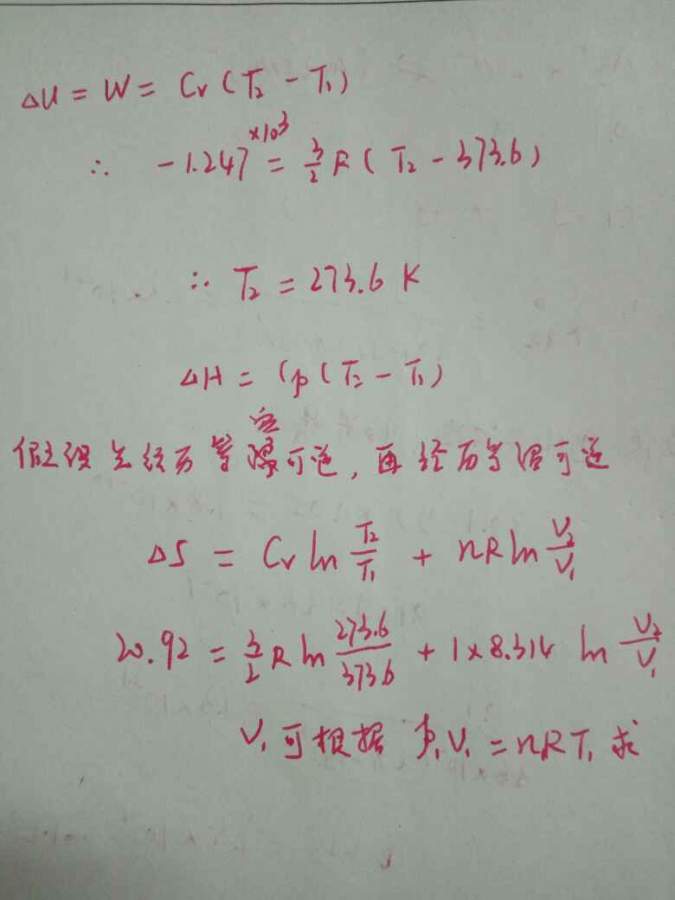 ΔU = W = Cv (T₂ - T₁)
∴ -1.247×10³ = 3/2 R ( T₂ - 373.6 )
∴ T₂ = 273.6 K
ΔH = Cp ( T₂ - T₁ )
假设先经历等容可逆, 再经历等温可逆
ΔS = Cv ln T₂/T₁ + nR ln V₂/V₁
20.92 = 3/2 R ln 273.6/373.6 + 1×8.314 ln V₂/V₁
V₁ 可根据 p₁V₁ = nRT₁ 求